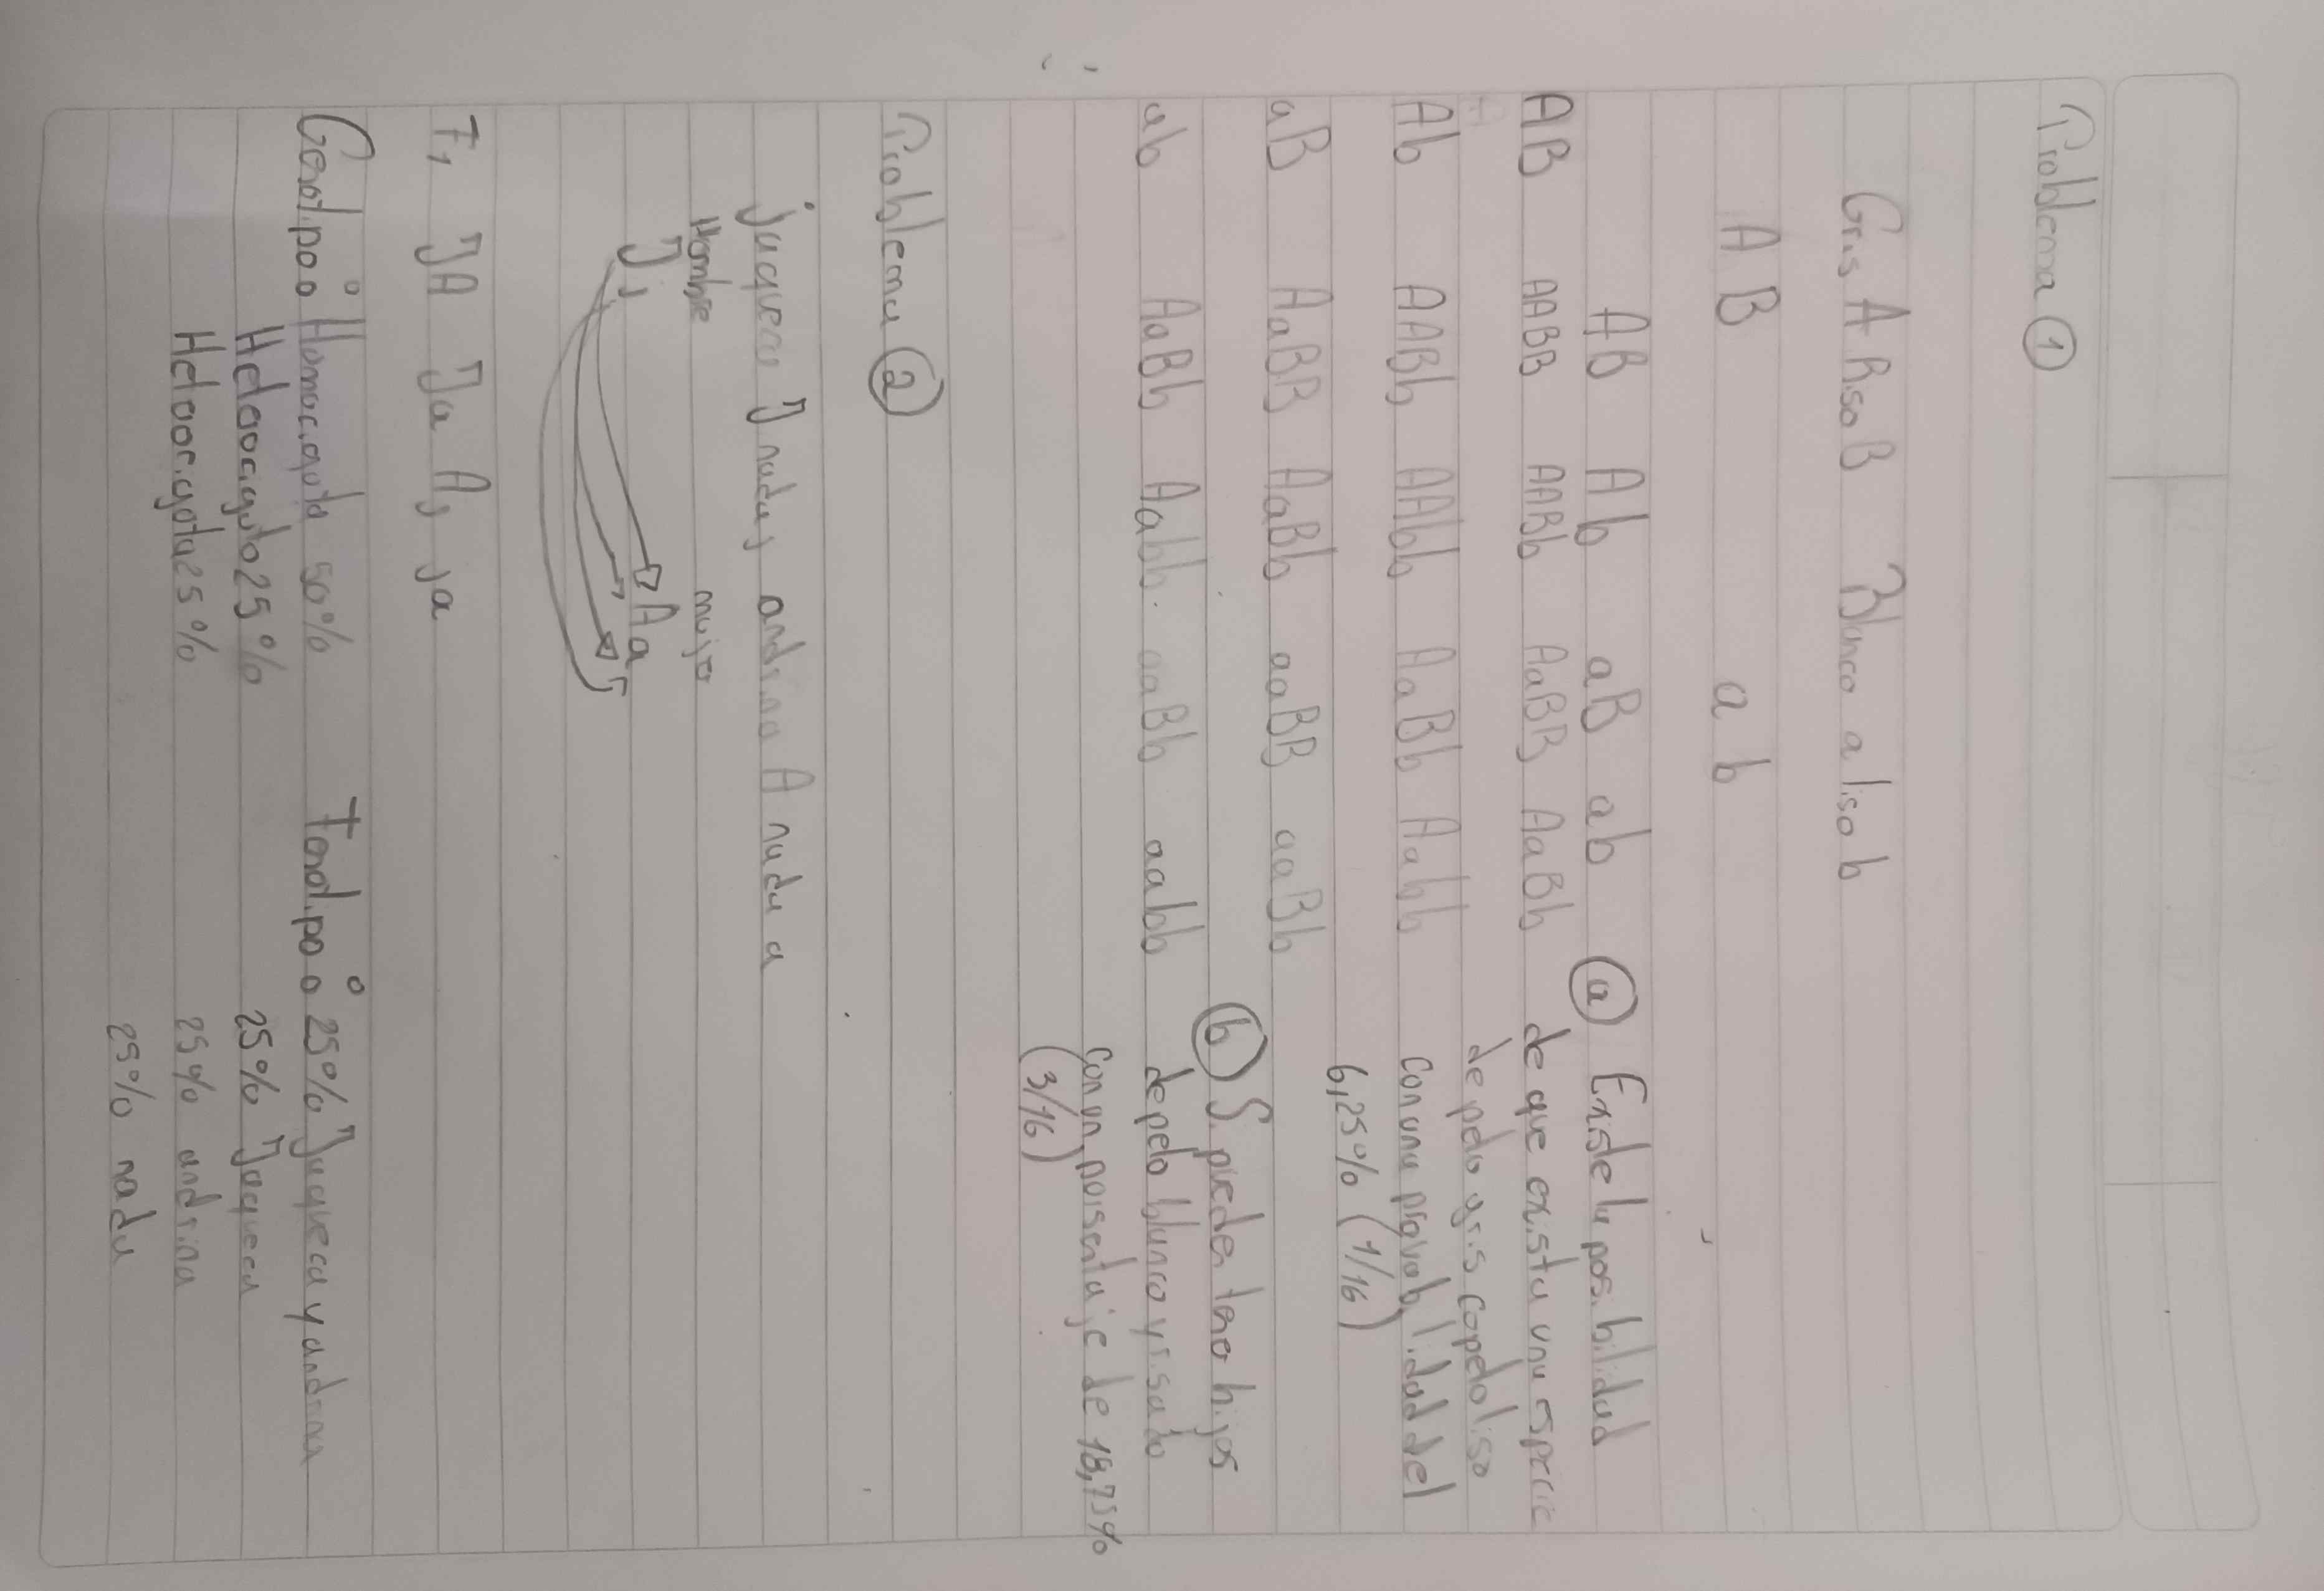 Problema 1
Gris A Riso B Blanco a liso b
A B a b
AB Ab aB ab
AB AABB AABb AaBB AaBb
Ab AABb AAbb AaBb Aabb
aB AaBB AaBb aaBB aaBb
ab AaBb Aabb aaBb aabb
a Existe la posibilidad
de que exista una especie
de pelo gris copelo liso
con una probablidad del
6,25% (1/16)
b Si pueden tener hijos
de pelo blanco y risado
con un porsentaje de 18,75%
(3/16)
Problema 2
jaqueca J nada j andrina A nada a
Hombre mujer
Jj Aa
F1 JA Ja Aj ja
Homocigoto 50%
25%
Heterocigota 25%
25% Jaqueca y
25% Jaqueca
25% andrina
25% nada